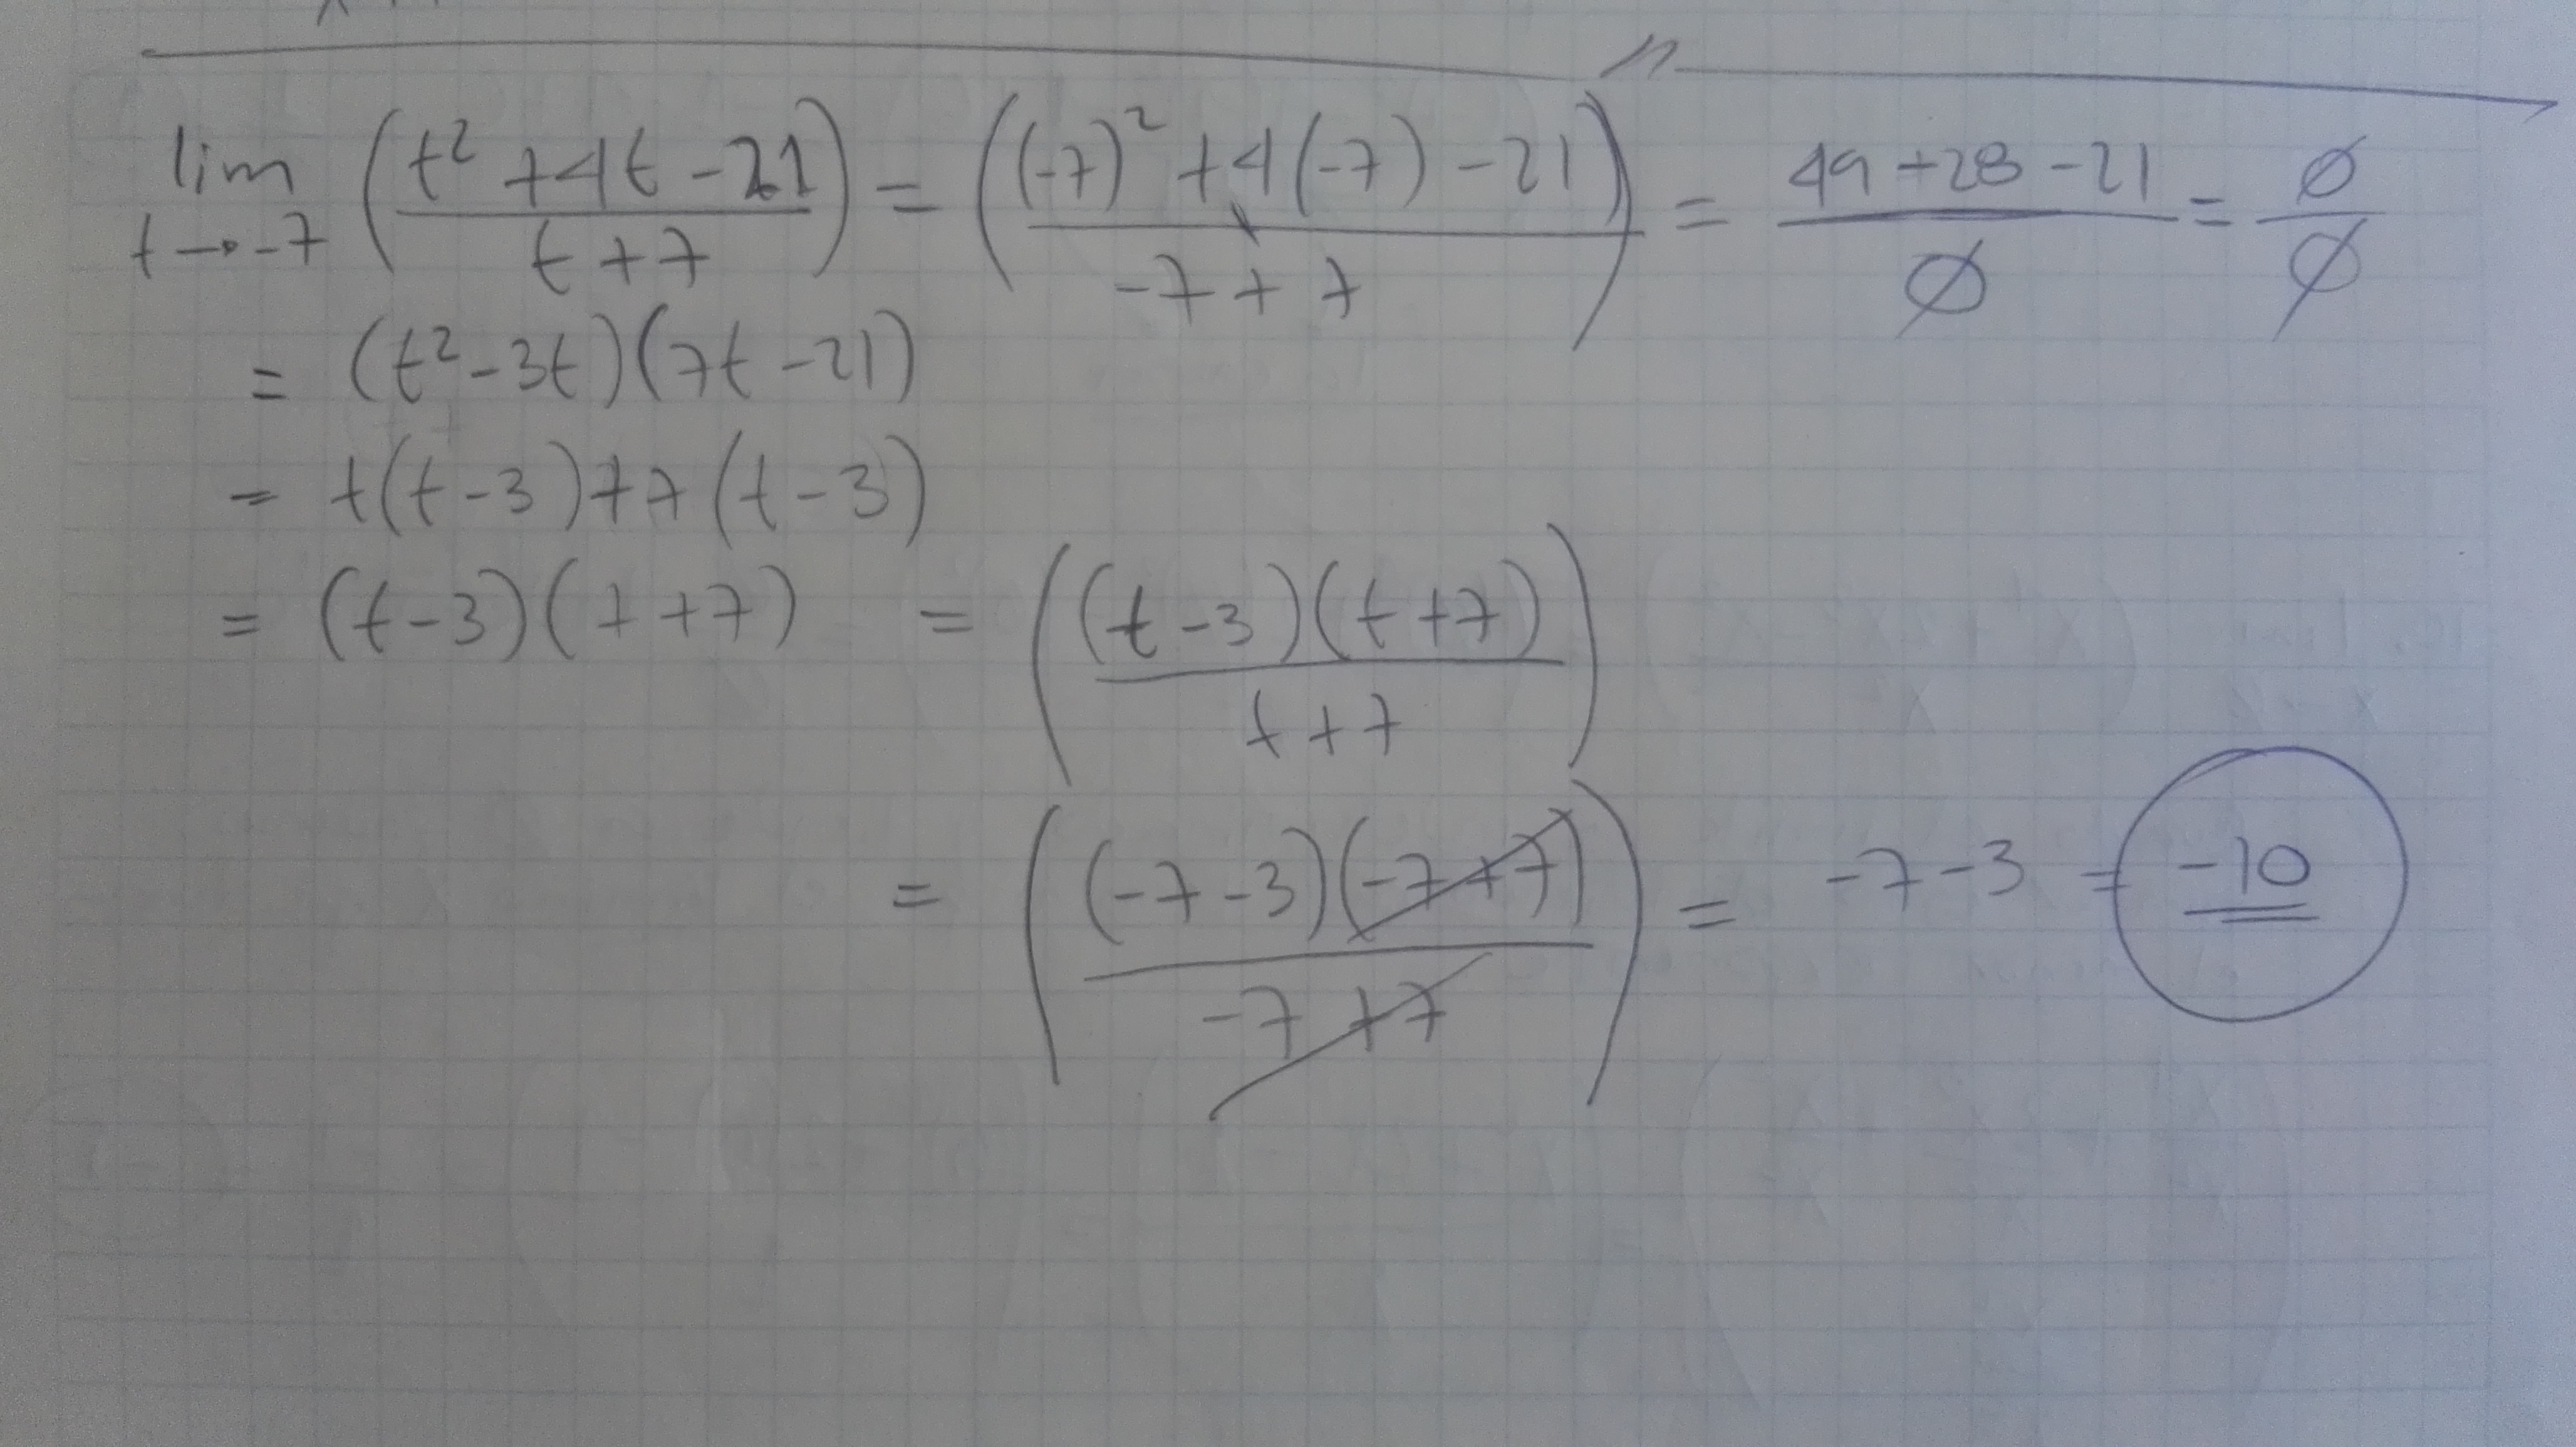 lim (t² + 4t - 21 / t + 7) = ((-7)² + 4(-7) - 21 / -7 + 7) = 49 + 28 - 21 / ∅ = ∅ / ∅
t → -7
= (t² - 3t)(7t - 21)
= t(t - 3) + 7(t - 3)
= (t - 3)(t + 7) = ((t - 3)(t + 7) / t + 7)
= ((-7 - 3)(-7 + 7) / -7 + 7) = -7 - 3 = -10